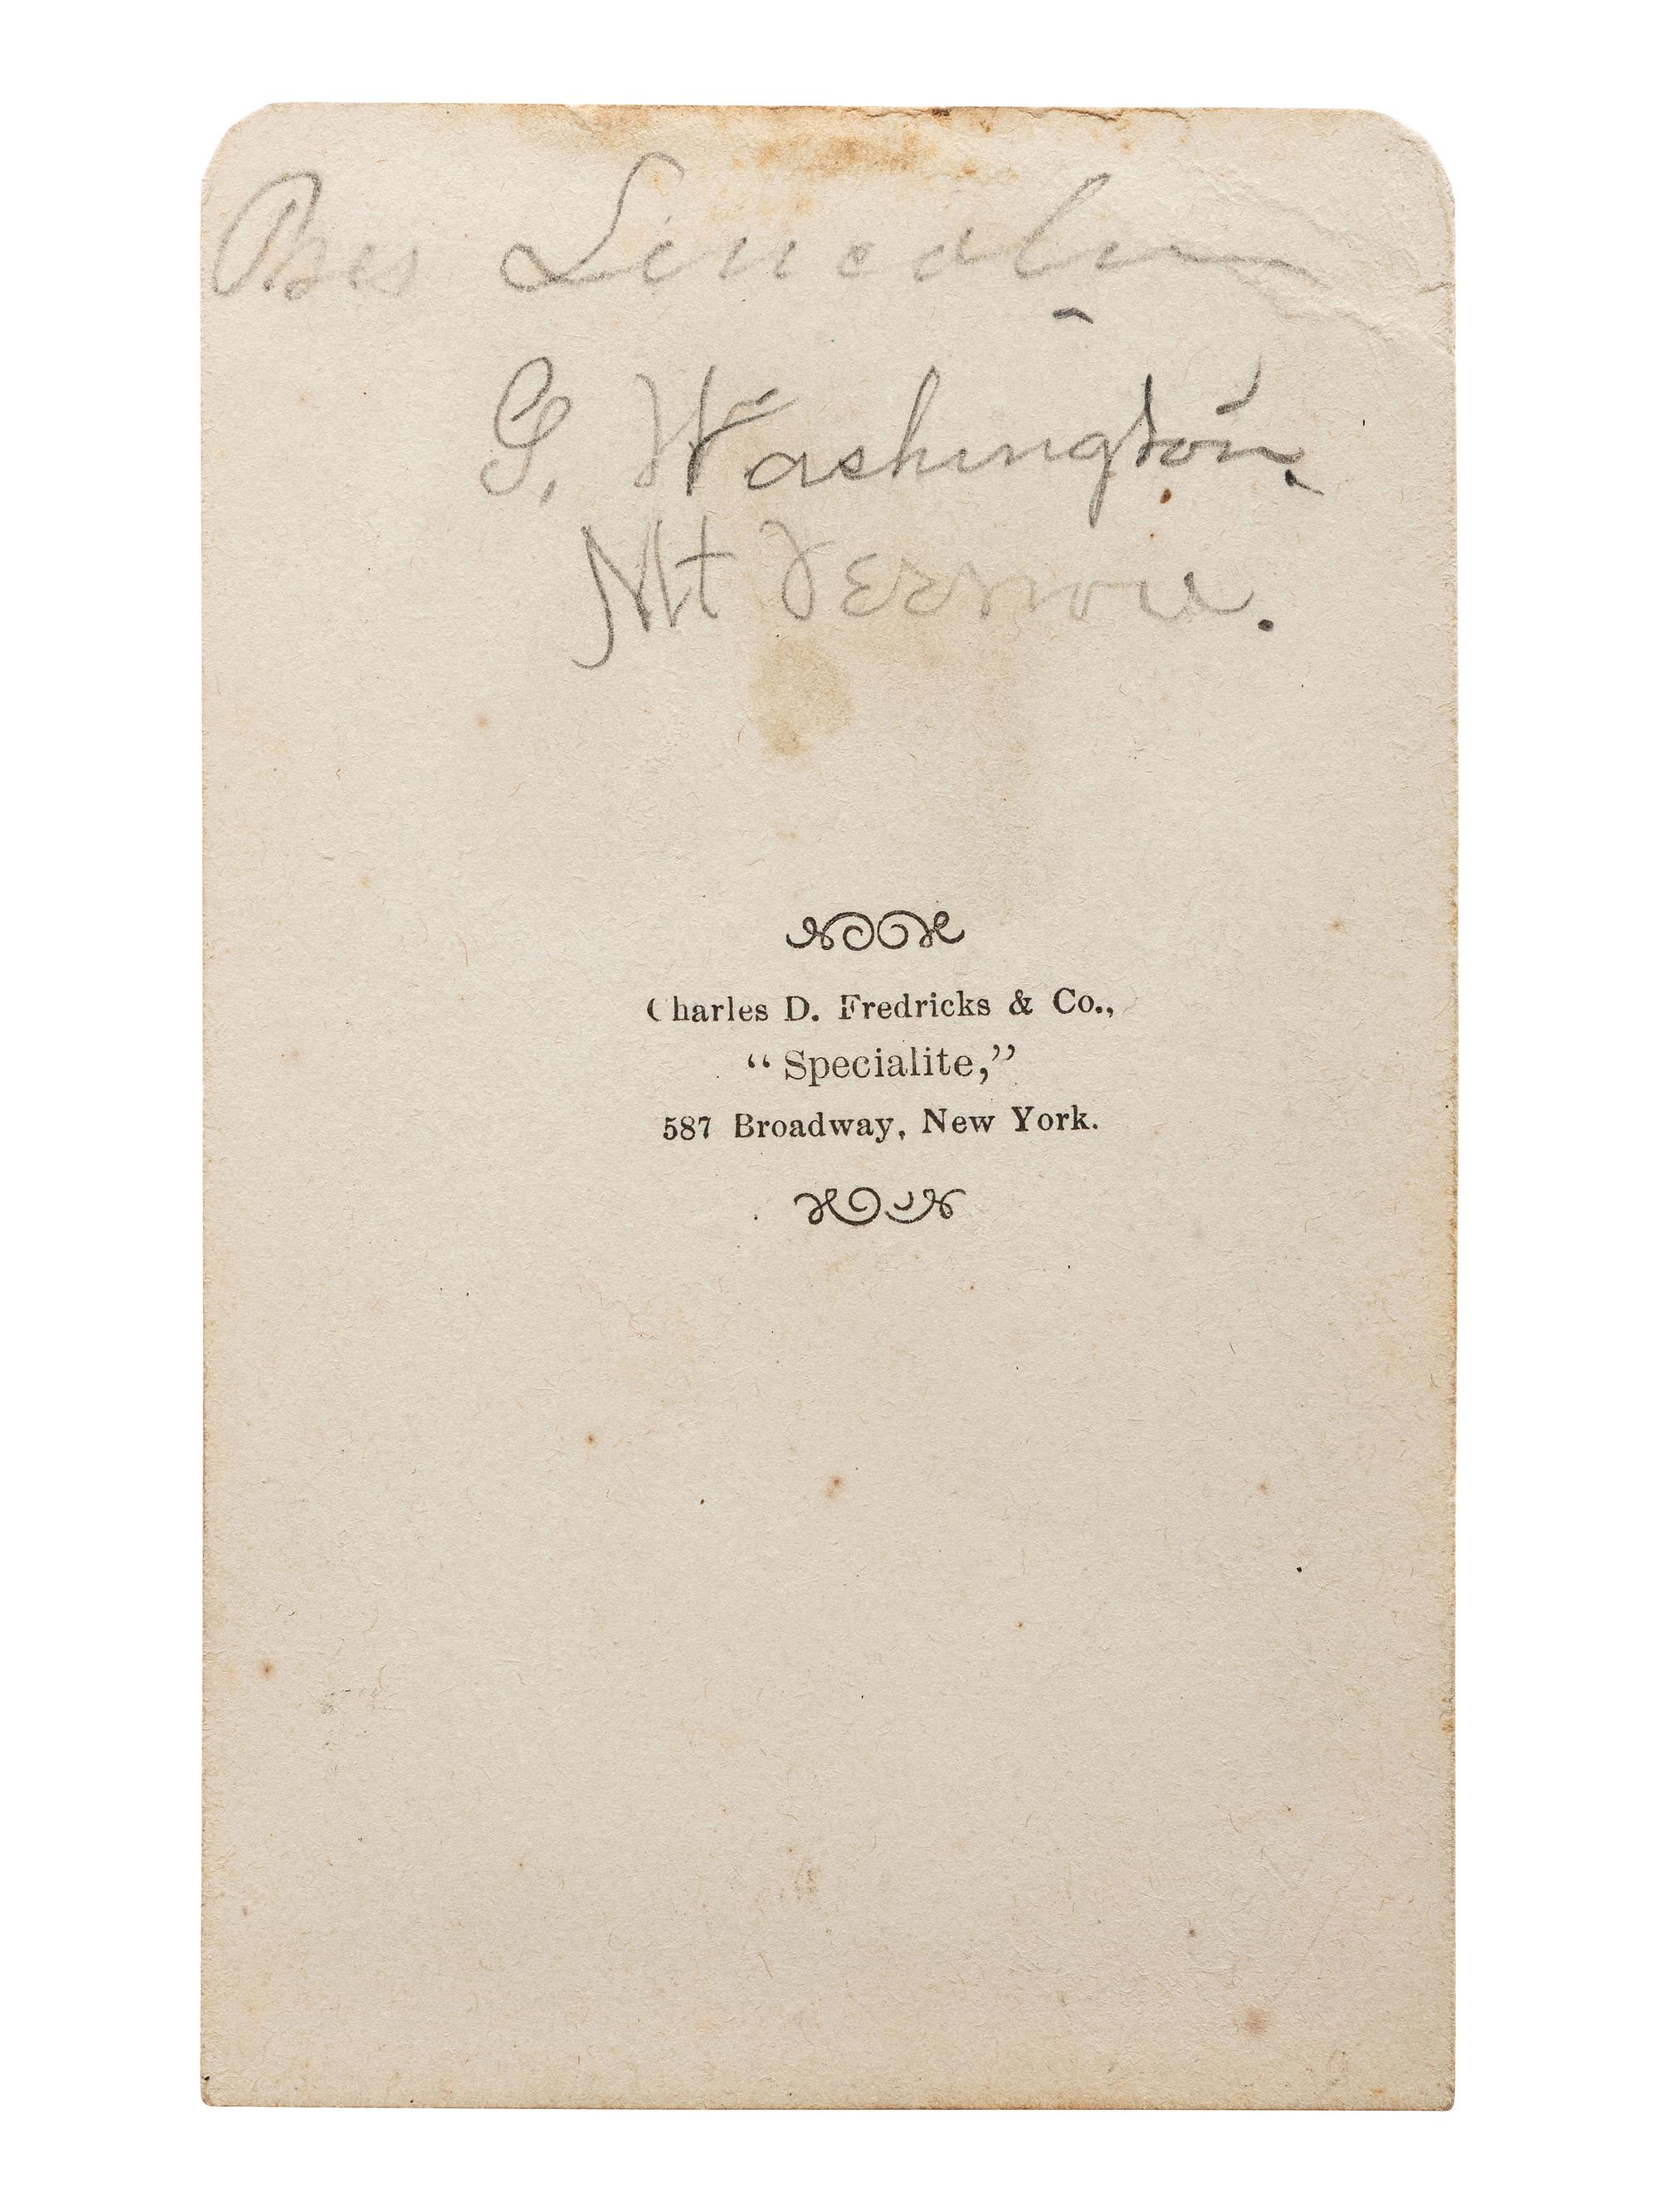 Pres Lincoln
G. Washington.
Mt Vernon.
Charles D. Fredricks & Co.,
“Specialite,”
587 Broadway, New York.